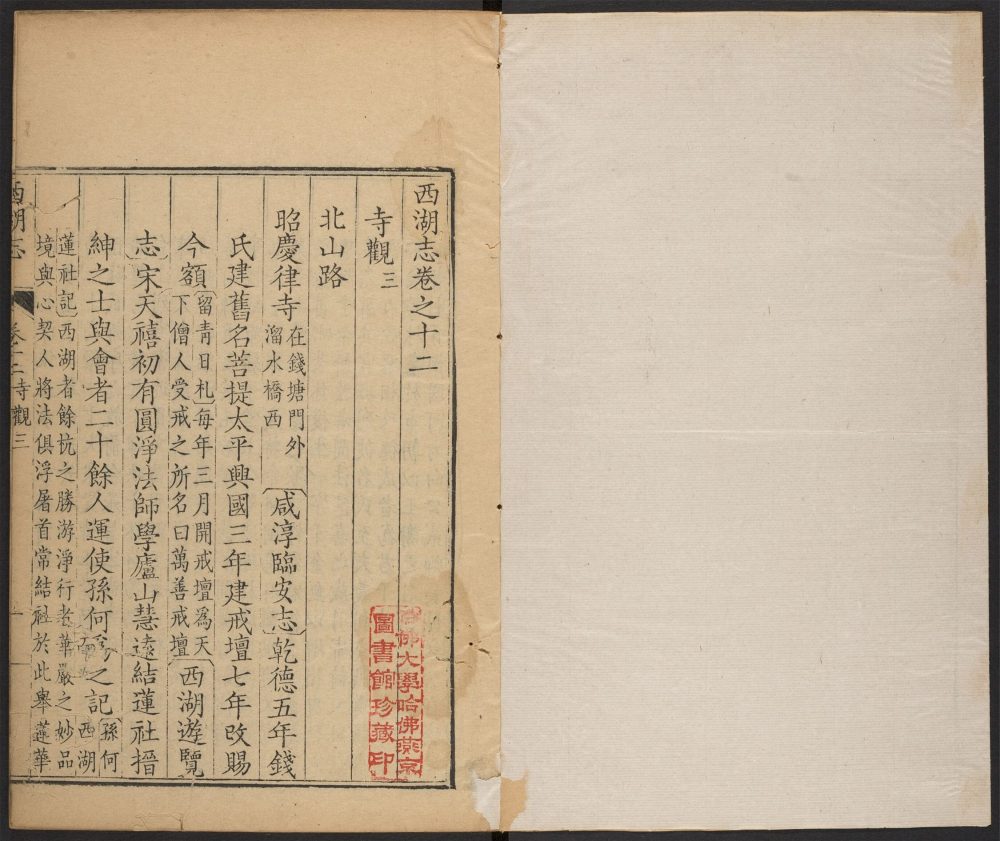 西湖志卷之十二
寺觀三
北山路
昭慶律寺在錢塘門外溜水橋西咸淳臨安志乾德五年錢
氏建舊名菩提太平興國三年建戒壇七年改賜
今額留青日札每年三月開戒壇為天下僧人受戒之所名曰萬善戒壇西湖遊覽
志宋天禧初有圓淨法師學廬山慧遠結蓮社搢
紳之士與會者二十餘人運使孫何為之記孫何西湖
蓮社記西湖者餘杭之勝游淨行者華嚴之妙品
境與心契人將法俱浮屠首常結社於此舉蓮華
西湖志 卷十二寺觀三 一
哈佛大學哈佛燕京
圖書館珍藏印